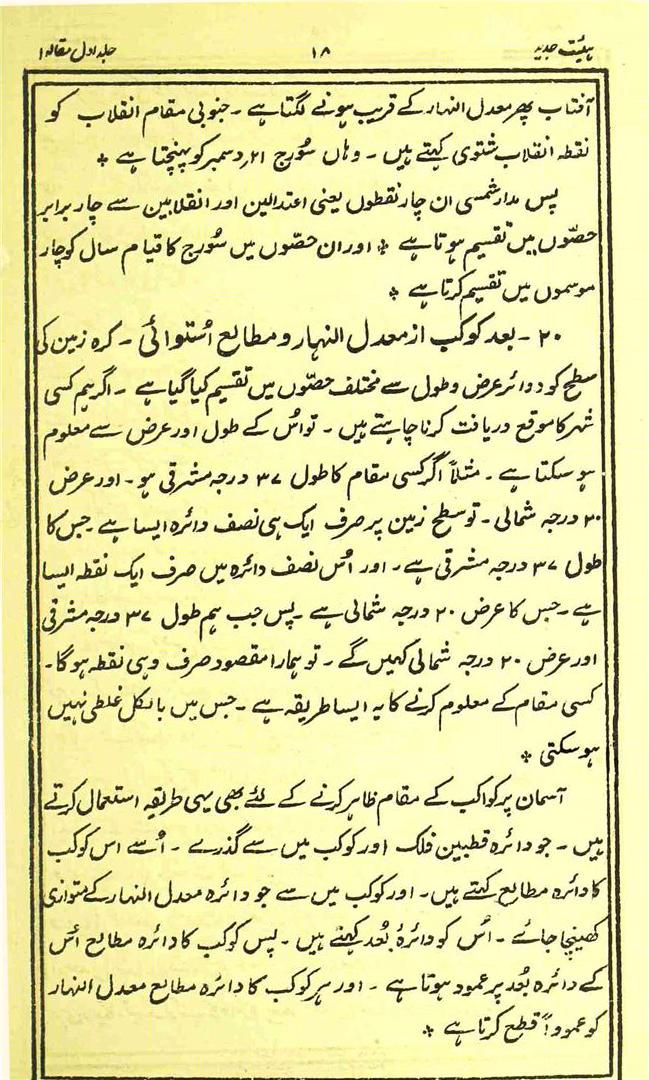 ہیئت جدیہ ۱۸ جلد اول مقالہ ۱
آفتاب پھر معدل النہار کے قریب ہونے لگتا ہے ۔ جنوبی مقام انقلاب کو
نقطہ انقلاب شتوی کہتے ہیں ۔ وہاں سُورج ۲۱؍ دسمبر کو پہنچتا ہے *
پس مدار شمسی ان چار نقطوں یعنی اعتدالین اور انقلابین سے چار برابر
حصّوں میں تقسیم ہوتا ہے * اور ان حصّوں میں سُورج کا قیام سال کو چار
موسموں میں تقسیم کرتا ہے *
۲۰ ۔ بعد کوکب از معدل النہار و مطالع اُستوائی ۔ کرہ زمین کی
سطح کو دوائر عرض و طول سے مختلف حصّوں میں تقسیم کیا گیا ہے ۔ اگر ہم کسی
شہر کا موقع دریافت کرنا چاہتے ہیں ۔ تو اُس کے طول اور عرض سے معلوم
ہو سکتا ہے ۔ مثلاً اگر کسی مقام کا طول ۳۷ درجہ مشرقی ہو ۔ اور عرض
۲۰ درجہ شمالی ۔ تو سطح زمین پر صرف ایک ہی نصف دائرہ ایسا ہے جس کا
طول ۳۷ درجہ مشرقی ہے ۔ اور اُس نصف دائرہ میں صرف ایک نقطہ ایسا
ہے ۔ جس کا عرض ۲۰ درجہ شمالی ہے ۔ پس جب ہم طول ۳۷ درجہ مشرقی
اور عرض ۲۰ درجہ شمالی کہیں گے ۔ تو ہمارا مقصود صرف وہی نقطہ ہو گا ۔
کسی مقام کے معلوم کرنے کا یہ ایسا طریقہ ہے ۔ جس میں بالکل غلطی نہیں
ہو سکتی *
آسمان پر کواکب کے مقام ظاہر کرنے کے لئے بھی یہی طریقہ استعمال کرتے
ہیں ۔ جو دائرہ قطبین فلک اور کوکب میں سے گذرے ۔ اُسے اس کوکب
کا دائرہ مطالع کہتے ہیں ۔ اور کوکب میں سے جو دائرہ معدل النہار کے متوازی
کھینچا جائے ۔ اُس کو دائرۂ بُعد کہتے ہیں ۔ پس کوکب کا دائرہ مطالع اُس
کے دائرہ بُعد پر عمود ہوتا ہے ۔ اور ہر کوکب کا دائرہ مطالع معدل النہار
کو عموداً قطع کرتا ہے *